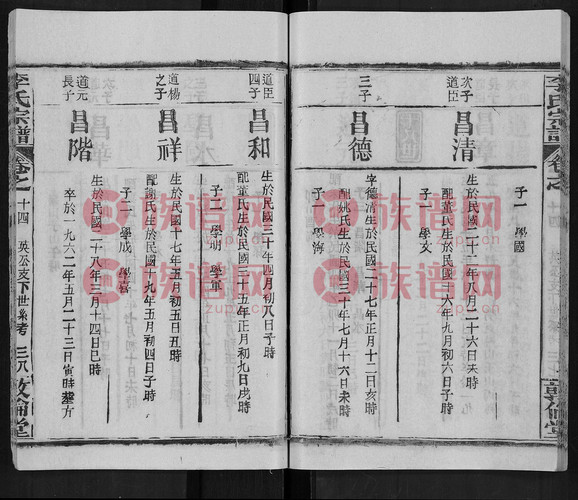 李氏宗譜
子一 學國
次子
道臣
昌清
生於民國二十二年八月二十六日未時
配董氏生於民國二六年九月初六日子時
子一 學文
三子
昌德
字德清生於民國二十七年正月十二日亥時
配姚氏生於民國三十年七月十六日未時
子一 學海
道臣
四子
昌和
生於民國三十年四月初八日子時
配董氏生於民國三十五年正月初九日戌時
子二 學明 學軍
道楊
之子
昌祥
生於民國十七年五月初五日丑時
配謝氏生於民國十九年五月初四日子時
子二 學成 學喜
道元
長子
昌階
生於民國二十八年三月十四日巳時
卒於一九六二年五月二十三日寅時葬方
李氏宗譜
卷之
十四
英公支下世系考
三八
敦倫堂
族谱网
zupu.cn
族谱网
zupu.cn
族谱网
zupu.cn
族谱网
zupu.cn